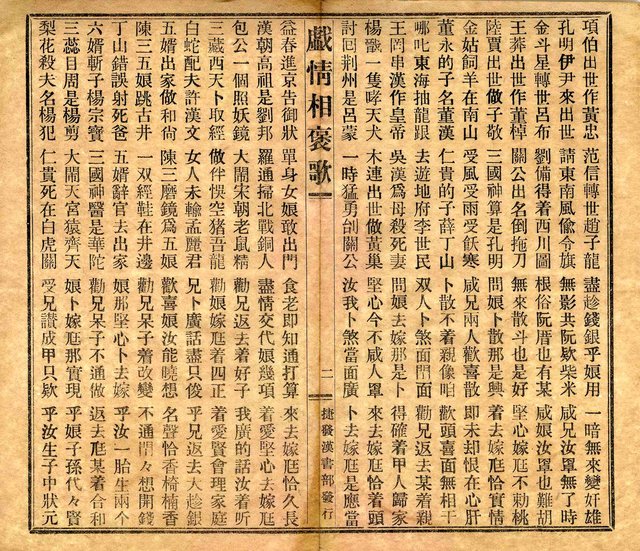 項伯出世作黃忠 范信轉世趙子龍 盡趁錢銀乎娘用 一暗無來變奸雄
孔明伊尹來出世 請東南風儉令旗 無影共阮欵柴米 咸兄汝罩無了時
金斗星轉世呂布 劉備得着西川圖 根俗阮厝也有某 咸娘汝罩也難胡
王莽出世作董悼 關公出名倒拖刀 無來散斗也是好 堅心嫁尫不勅桃
陸賈出世做子敬 三國神算是孔明 問娘卜散那是興 來去嫁尫恰實情
金姑飼羊在南山 受風受雨受飫寒 咸兄兩人歡喜散 即未却恨在心肝
董永的子名董漢 仁貴的子薛丁山 卜散不着親像咱 歡頭喜面無相干
哪吒東海抽龍跟 去遊地府李世民 双人卜煞面問面 勸兄返去某着親
王罔串漢作皇帝 吳漢爲母殺死妻 問娘去嫁那是卜 得確着甲人歸家
楊戩一隻哮天犬 木連出世做黃巢 堅心今不咸人罩 來去嫁尫恰着頭
討囘荆州是呂蒙 一時猛勇刣關公 汝我卜煞當面廣 卜去嫁尫是應當
戲情相褒歌 二 捷發漢書部發行
益春進京告御狀 單身女娘敢出門 食老即知通打算 來去嫁尫恰久長
漢朝高祖是劉邦 羅通掃北戰銅人 盡情交代娘幾項 着愛堅心去嫁尫
包公一個照妖鏡 大閙宋朝老鼠精 勸兄返去着好子 着愛賢會理家庭
三藏西天卜取經 做伴悮空猪吾龍 娘卜嫁尫着四正 我廣的話汝着听
白蛇配夫許漢文 女人未輸孟麗君 兄卜廣話盡只俊 乎兄返去大趁銀
五婿出家做和尙 陳三磨鏡爲五娘 歡喜娘汝能曉想 名聲恰香椅楠香
陳三五娘跳古井 一双經鞋在井邊 勸兄呆子着改變 不通開々想開錢
丁山錯誤射死爸 五婿辭官去出家 娘那堅心卜去嫁 乎汝一胎生兩个
六婿斬子楊宗寶 三國神醫是華陀 勸兄呆子不通做 返去尫某着合和
三蕊目周是楊剪 大閙天宮猿齊天 娘卜嫁尫那實現 乎娘子孫代々賢
梨花殺夫名楊犯 仁貴死在白虎關 受兄讚成甲只欵 乎汝生子中狀元